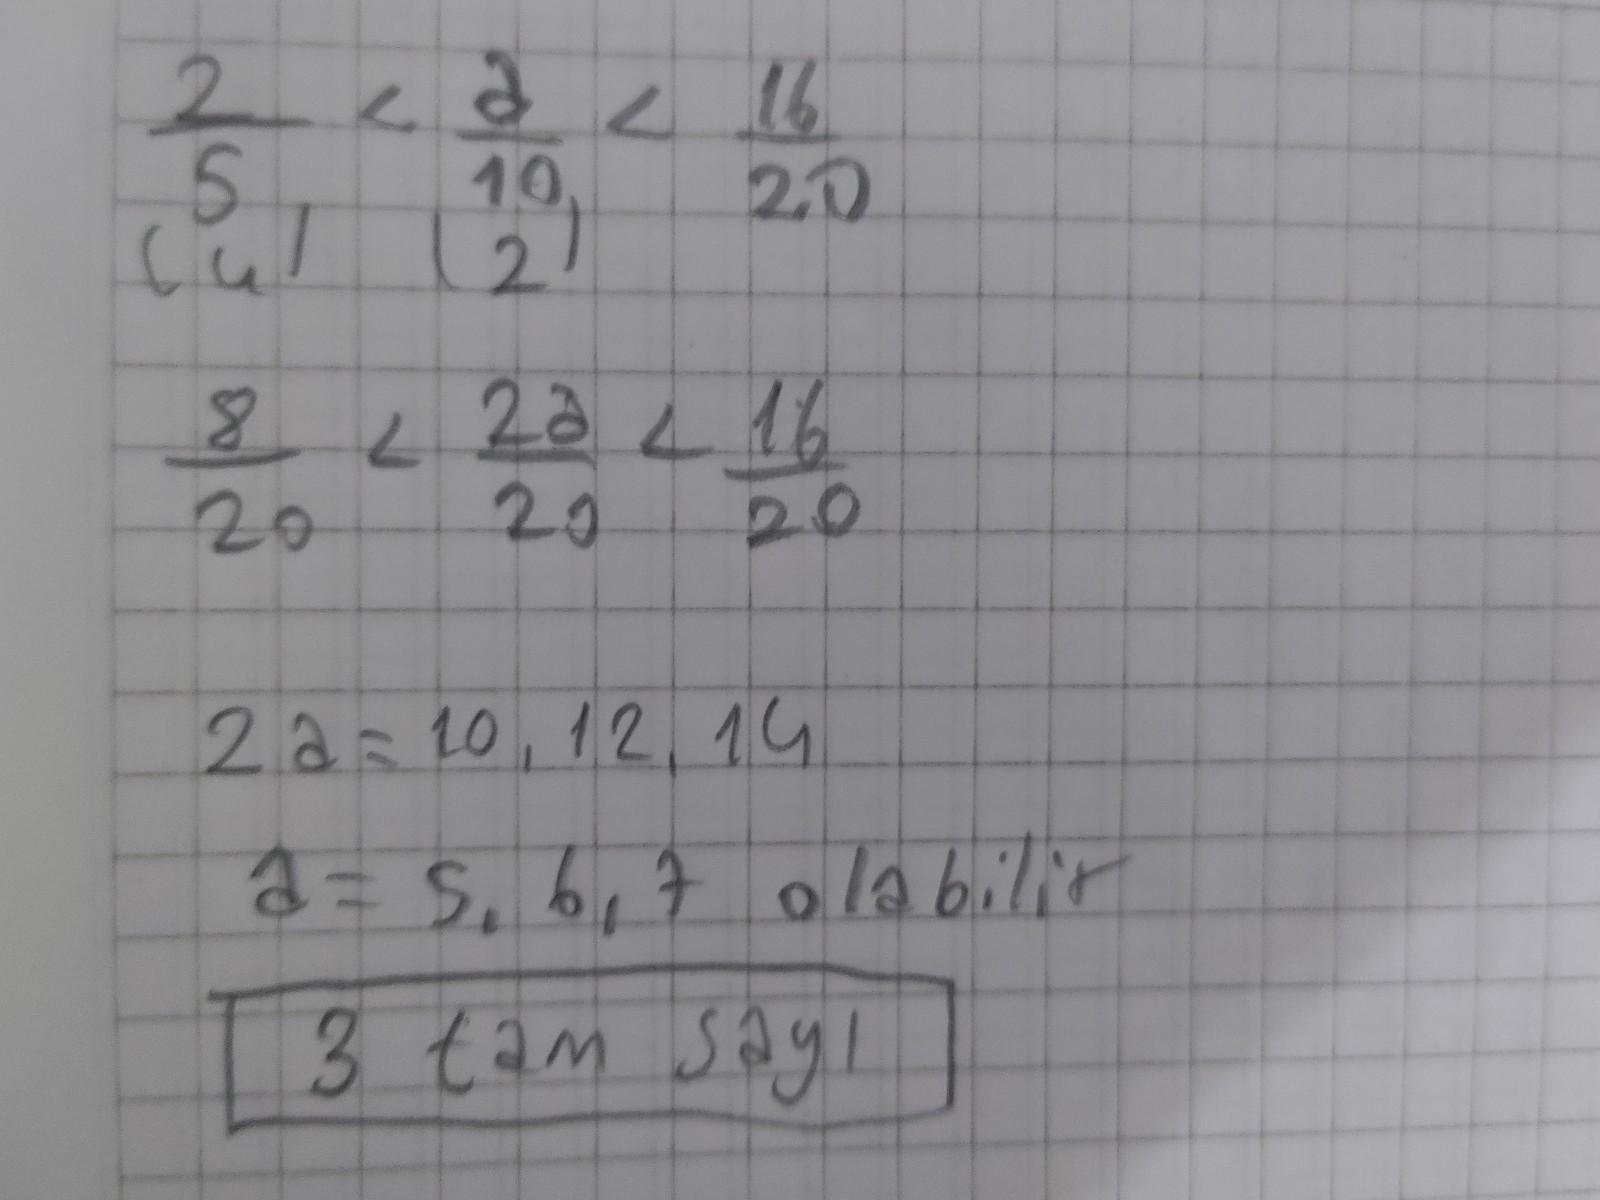 2/5 < a/10 < 16/20
(4) (2)
8/20 < 2a/20 < 16/20
2a = 10, 12, 14
a = 5, 6, 7 olabilir
3 tam sayı